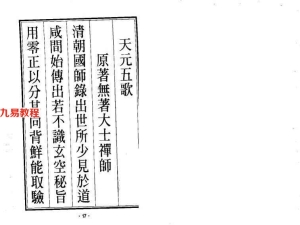 天元五歌
原著無著大士禪師
清朝國師錄出世所少見於道
咸間始傳出若不識玄空秘旨
用零正以分其向背鮮能取驗
九易教程
- 57 -